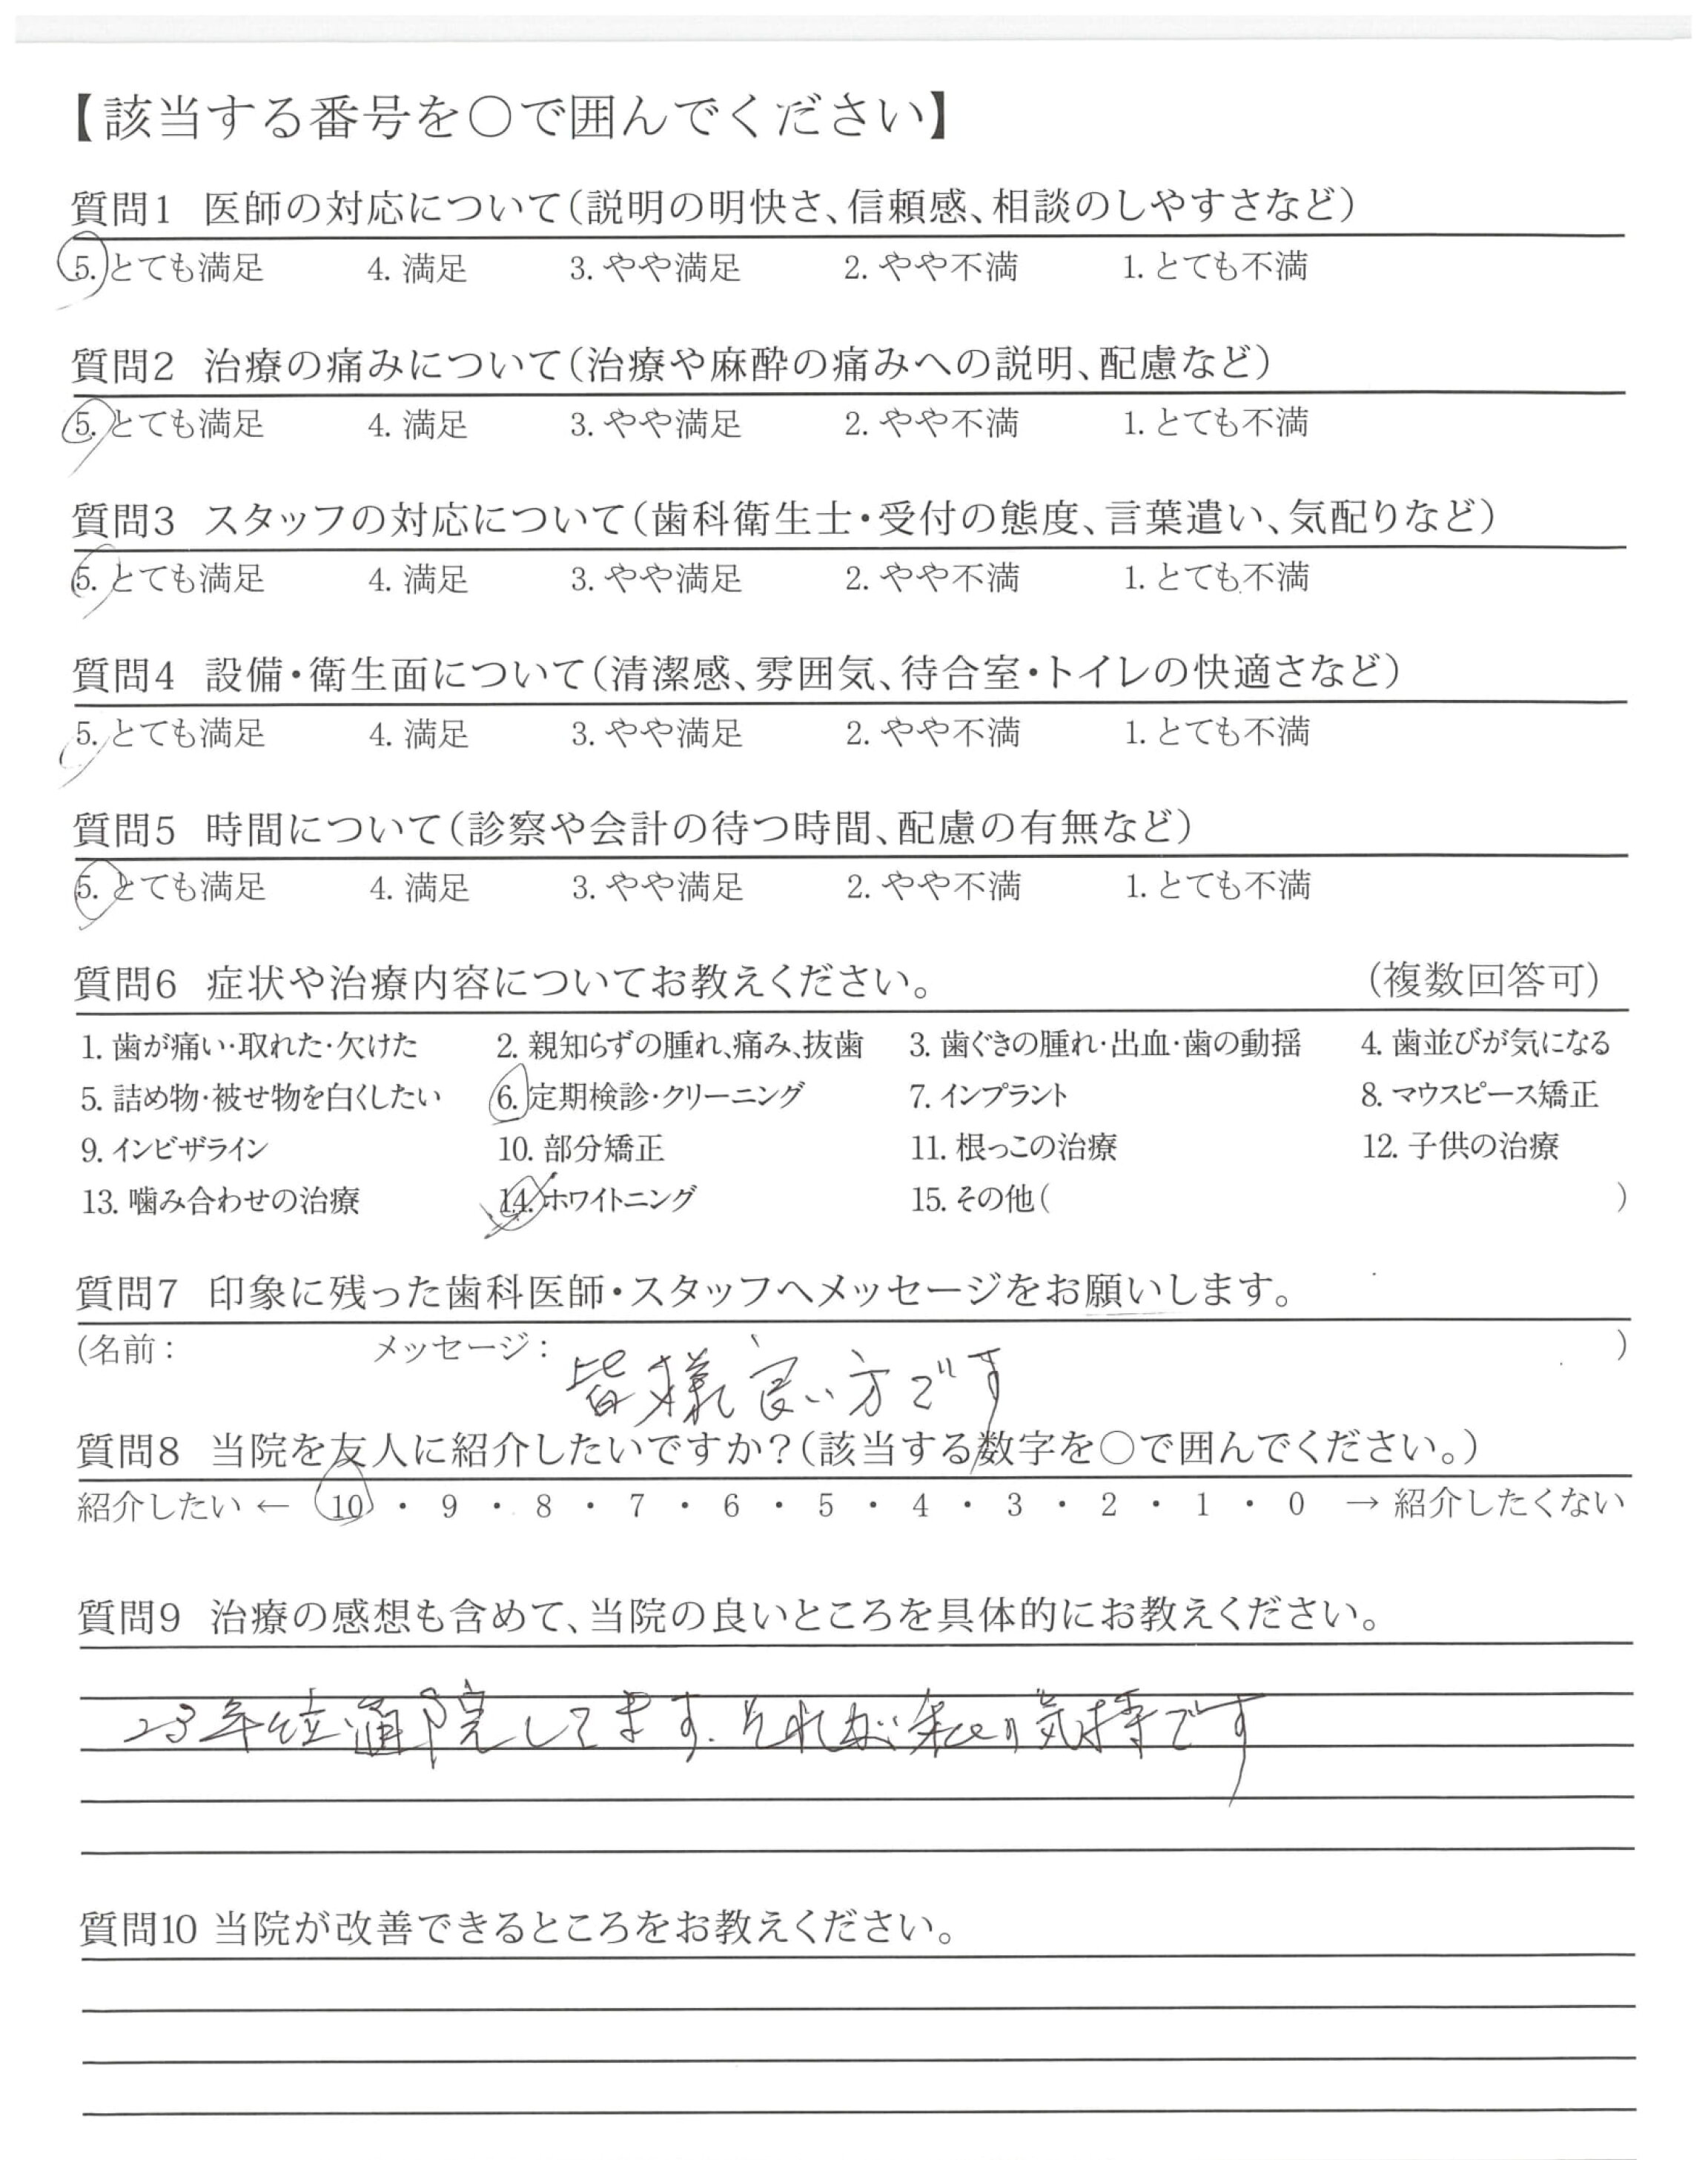 【該当する番号を○で囲んでください】
質問1 医師の対応について(説明の明快さ、信頼感、相談のしやすさなど)
5. とても満足 4. 満足 3. やや満足 2. やや不満 1. とても不満
質問2 治療の痛みについて(治療や麻酔の痛みへの説明、配慮など)
5. とても満足 4. 満足 3. やや満足 2. やや不満 1. とても不満
質問3 スタッフの対応について(歯科衛生士・受付の態度、言葉遣い、気配りなど)
5. とても満足 4. 満足 3. やや満足 2. やや不満 1. とても不満
質問4 設備・衛生面について(清潔感、雰囲気、待合室・トイレの快適さなど)
5. とても満足 4. 満足 3. やや満足 2. やや不満 1. とても不満
質問5 時間について(診察や会計の待つ時間、配慮の有無など)
5. とても満足 4. 満足 3. やや満足 2. やや不満 1. とても不満
質問6 症状や治療内容についてお教えください。 (複数回答可)
1. 歯が痛い・取れた・欠けた 2. 親知らずの腫れ、痛み、抜歯 3. 歯ぐきの腫れ・出血・歯の動揺 4. 歯並びが気になる
5. 詰め物・被せ物を白くしたい 6. 定期検診・クリーニング 7. インプラント 8. マウスピース矯正
9. インビザライン 10. 部分矯正 11. 根っこの治療 12. 子供の治療
13. 噛み合わせの治療 14. ホワイトニング 15. その他( )
質問7 印象に残った歯科医師・スタッフへメッセージをお願いします。
(名前: メッセージ: 皆様良い方です )
質問8 当院を友人に紹介したいですか?(該当する数字を○で囲んでください。)
紹介したい ← 10 ・ 9 ・ 8 ・ 7 ・ 6 ・ 5 ・ 4 ・ 3 ・ 2 ・ 1 ・ 0 → 紹介したくない
質問9 治療の感想も含めて、当院の良いところを具体的にお教えください。
23年位通院してます. それが私の気持です
質問10 当院が改善できるところをお教えください。